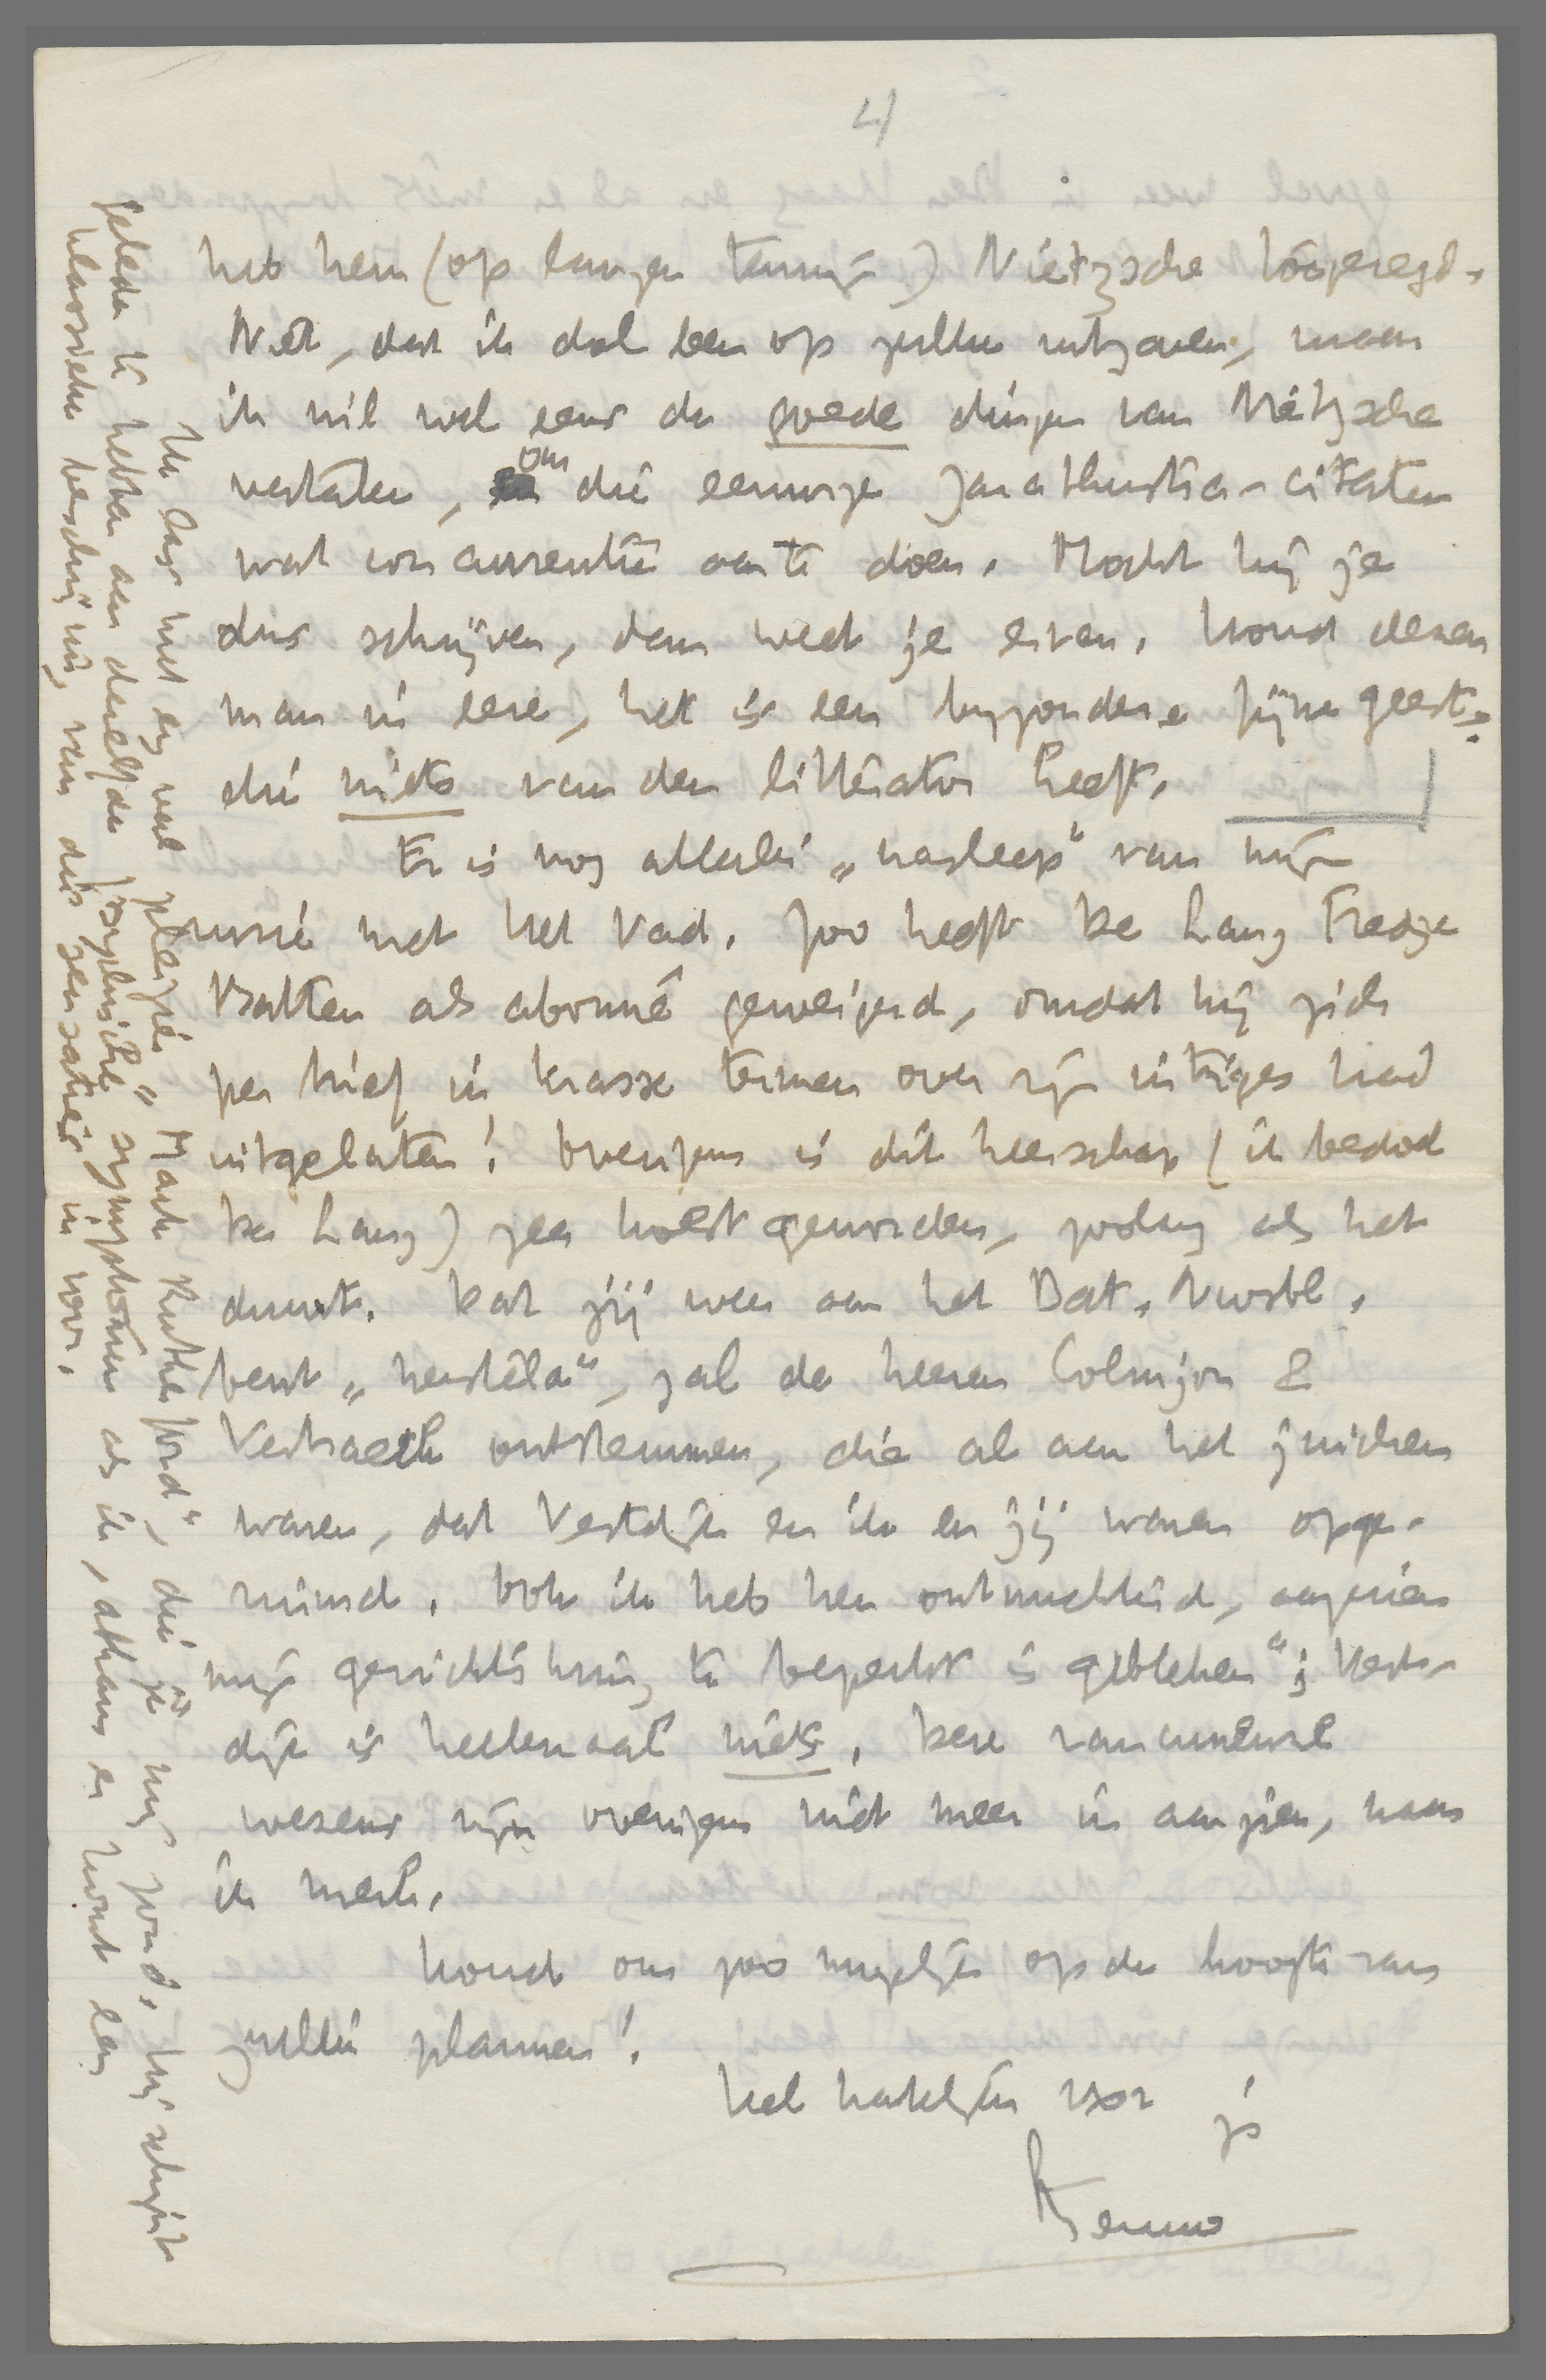 4)
heb hem (op langen termijn) Nietzsche toegezegd.
Niet, dat ik dol ben op zulke uitgaven, maar
ik wil wel eens de goede dingen van Nietzsche
vertalen, om die eeuwige Zarathustra-citaten
wat concurrentie aan te doen. Mocht hij je
dus schrijven, dan weet je ervan. Houd dezen
man in eere, het is een bijzondere fijne geest,
die niets van den littérator heeft.
Er is nog allerlei „nasleep" van mijn
ruzie met het Vad. Zoo heeft De Lang Fredje
Batten als abonné geweigerd, omdat hij zich
per brief in krasse termen over zijn intriges had
uitgelaten! Overigens is dit heerschap (ik bedoel
De Lang) zeer koest geworden, zoolang als het
duurt. Dat jij weer aan het Bat. Nwsbl.
bent „hersteld", zal de heeren Colmjon &
Verhaegh ontstemmen, die al aan het juichen
waren, dat Vestdijk en ik en jij waren opge-
ruimd. Ook ik heb hen ontnuchterd, aangezien
mijn gerichtskring te beperkt is gebleken"; Vest-
dijk is heelemaal niets. Deze rancuneuze
wezens zijn overigens niet meer in aanzien, naar
ik merk.
Houd ons zoo mogelijk op de hoogte van
jullie plannen!
hel hartelijks voor je
Menno
Ik las met erg veel pleizier „Mark Rutherford", die je mij zond. Hij schijnt
geleden te hebben aan dezelfde psychische symptomen als ik, althans er komt een
klassieke beschrijving van die sensaties in voor.